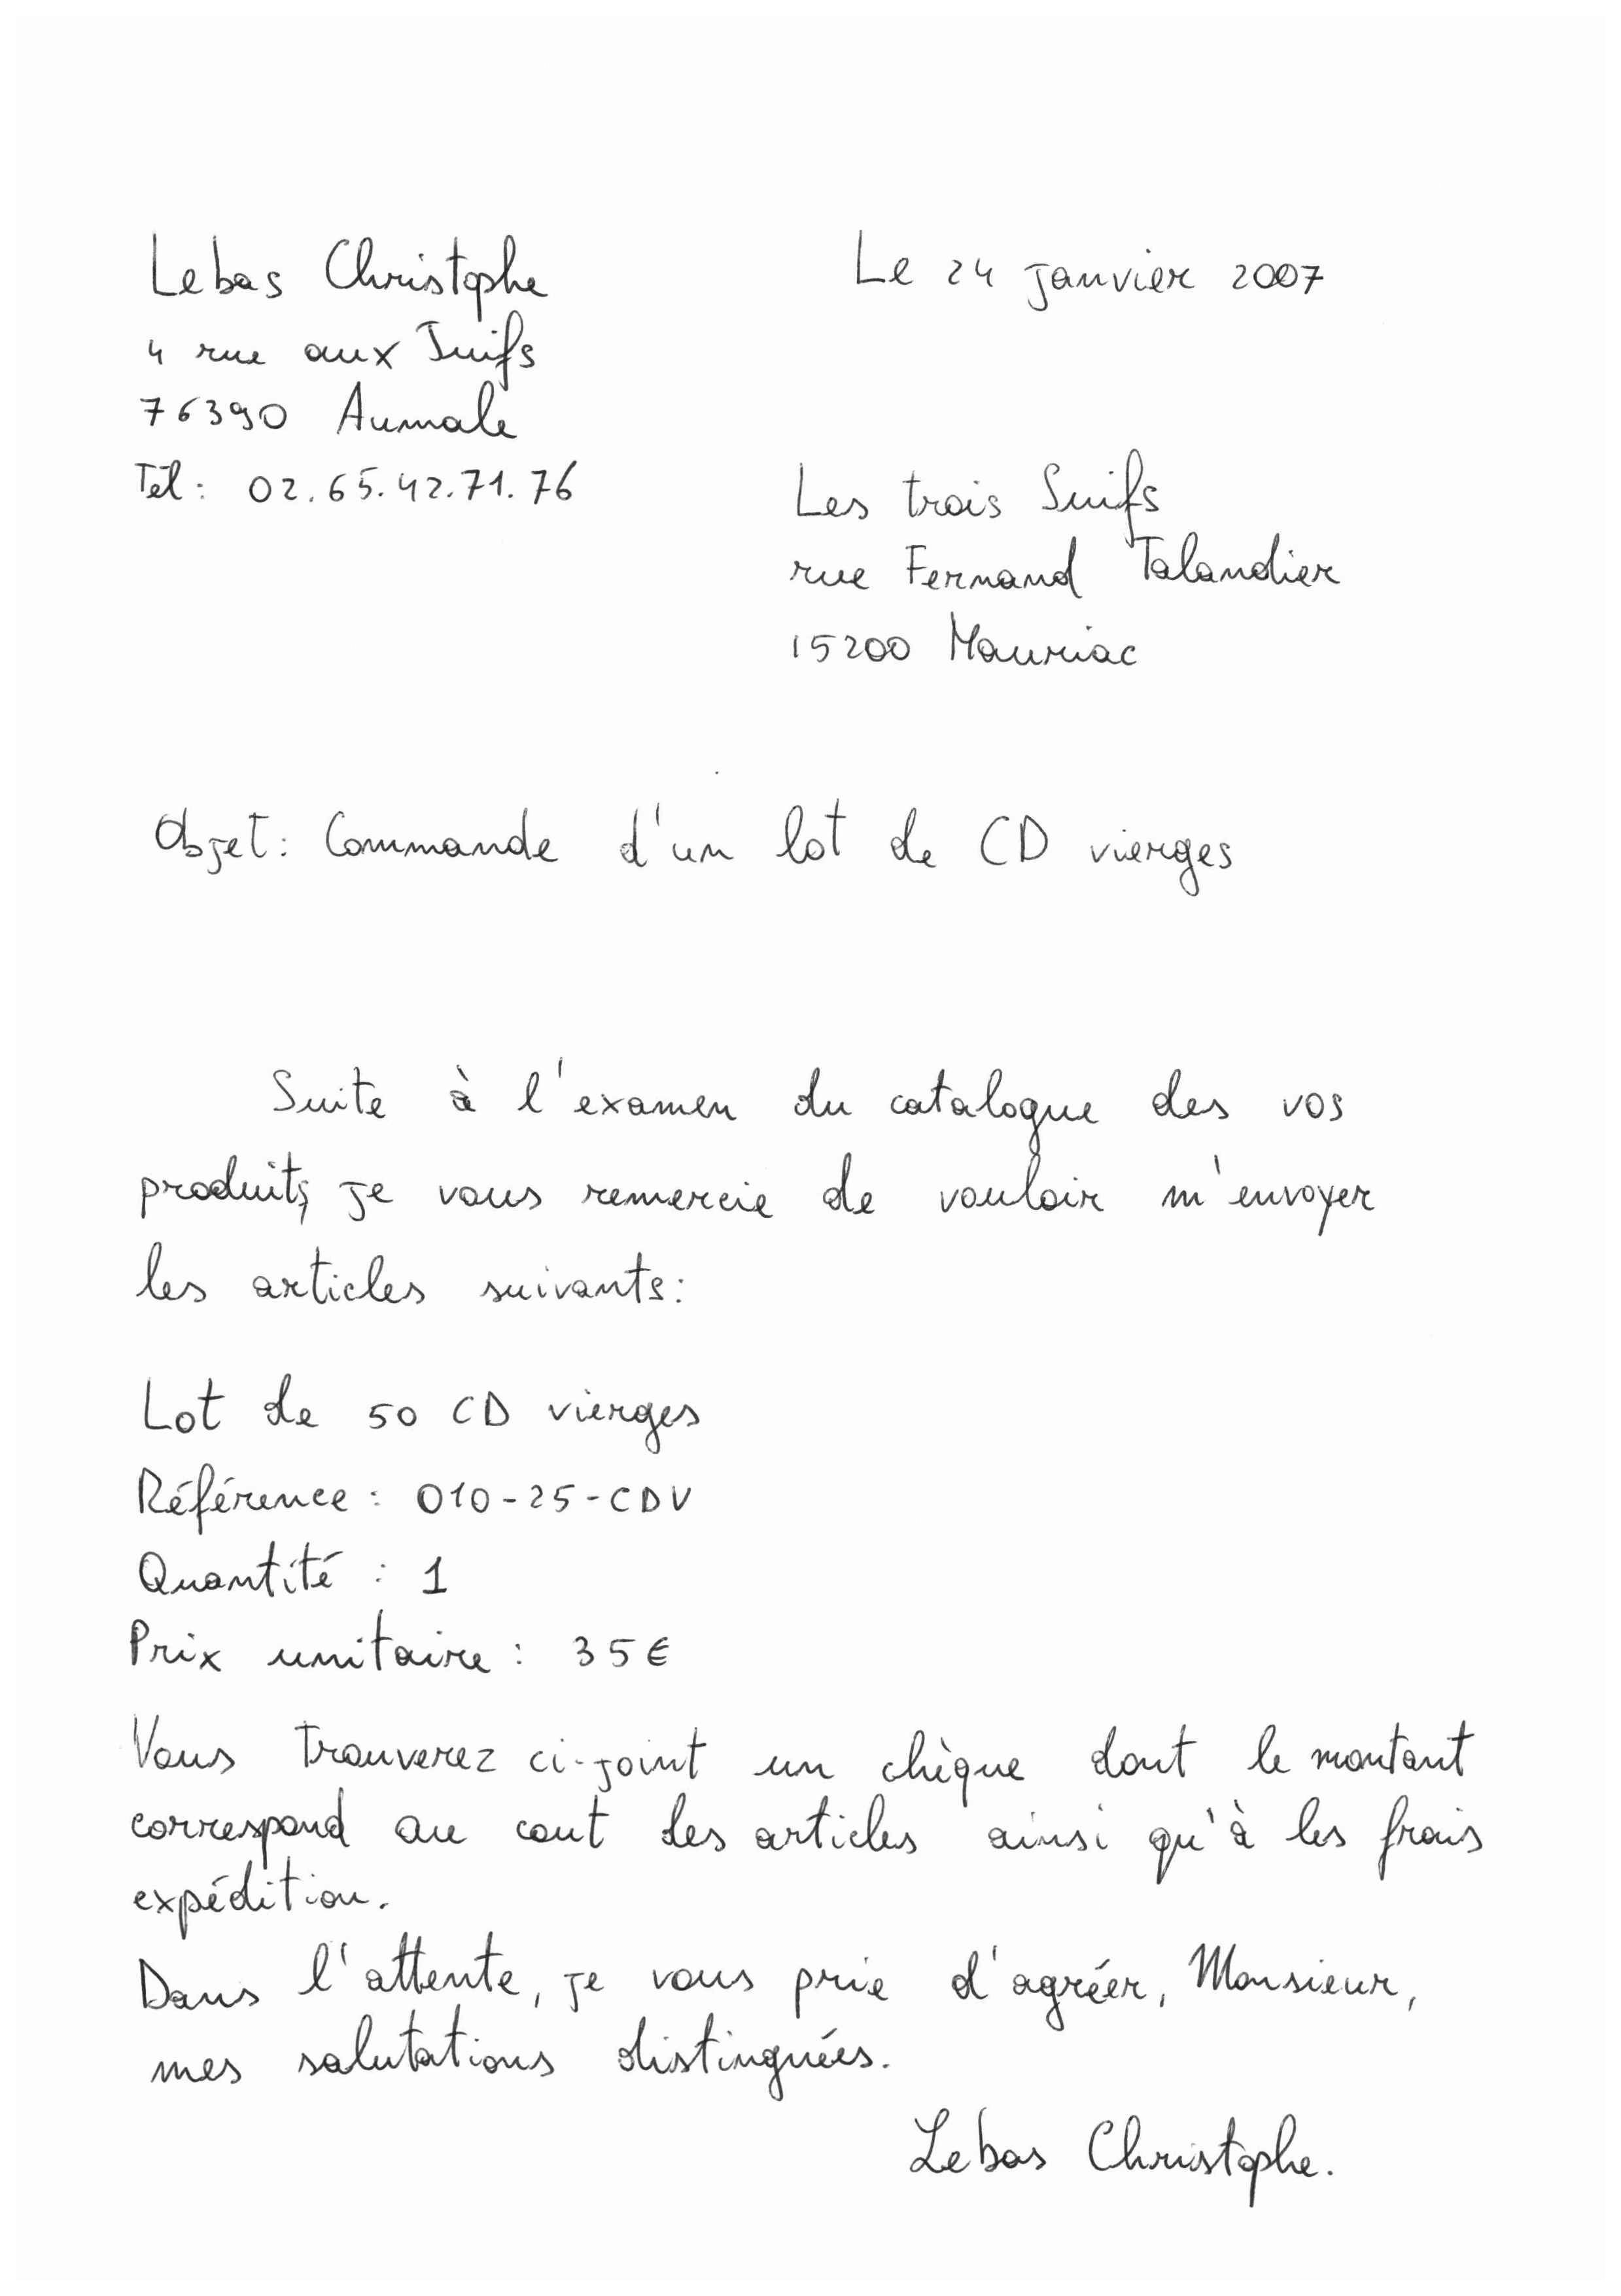 Lebas Christophe
Le 24 janvier 2007
4 rue aux Juifs
76390 Aumale
Tél : 02.65.42.71.76
Les trois Suifs
rue Fernand Talandier
15200 Mauriac
Objet : Commande d'un lot de CD vierges
Suite à l'examen du catalogue des vos
produits, je vous remercie de vouloir m'envoyer
les articles suivants :
Lot de 50 CD vierges
Référence : 010-25-CDV
Quantité : 1
Prix unitaire : 35€
Vous trouverez ci-joint un chèque dont le montant
correspond au cout des articles ainsi qu'à les frais
expédition.
Dans l'attente, je vous prie d'agréer, Monsieur,
mes salutations distinguées.
Lebas Christophe.